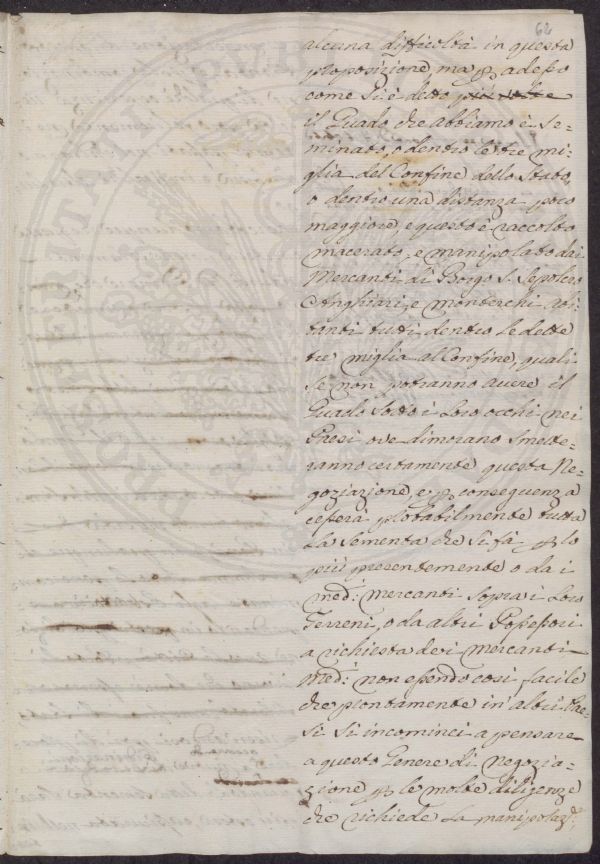 62
alcuna difficoltà in questa
proposizione ma p adesso
come si è detto più volte
il Guado che abbiamo è se=
minato, o dentro le tre mi=
glia del Confine dello Stato,
o dentro una distanza poco
maggiore, e questo è raccolto
macerato, e manipolato dai
Mercanti di Borgo S. Sepolcro
Anghiari, e Monterchi abi=
tanti tutti dentro le dette
tre miglia al Confine, quali
se non potranno avere il
Guado sotto i Loro occhi nei
Paesi ove dimorano smette=
ranno certamente questa Ne=
goziazione, e p conseguenza
cesserà probabilmente tutta
la sementa che si fà p lo
più presentemente o da i
med: mercanti sopra i Loro
Terreni, o da altri Possessori
a richiesta dei mercanti
med: non essendo così facile
che prontamente in altri Pae=
si si incominci a pensare
a questo Genere di negozia=
zione p le molte diligenze
che richiede la manipolaz:e